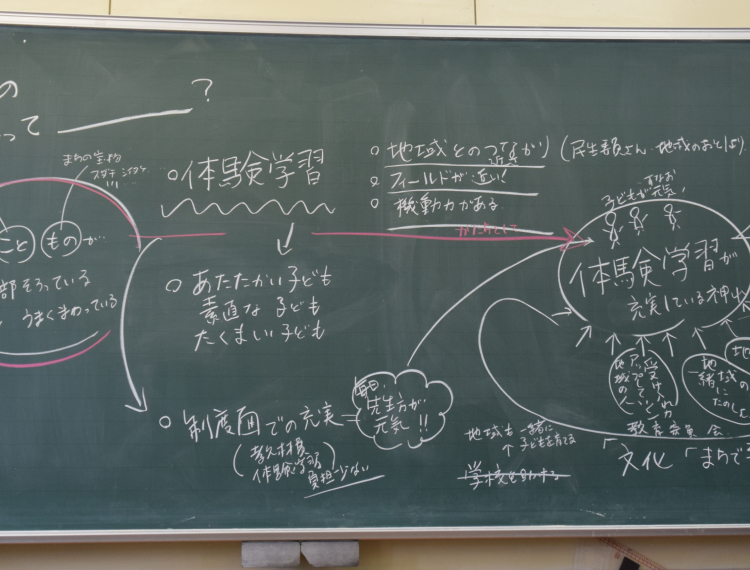 の
って ？
まちの宝物
こと ものが…
部そろっている
うまくまわっている
○体験学習
○ あたたかい子ども
素直な子ども
たくましい子ども
○ 制度面での充実
体験学習
負担少ない
毎日、
先生方が
元気!!
○ 地域とのつながり (民生委員さん…地域のおとしより)
近さ
○ フィールドが近い!
○ 機動力がある
子どもが元気!
体験学習が
充実している神山
地域の人
受け入れ
地域の
一緒に
たのしむ
教育委員会
地域も一緒に
↑ 子どもを育てる
「文化 「まちで